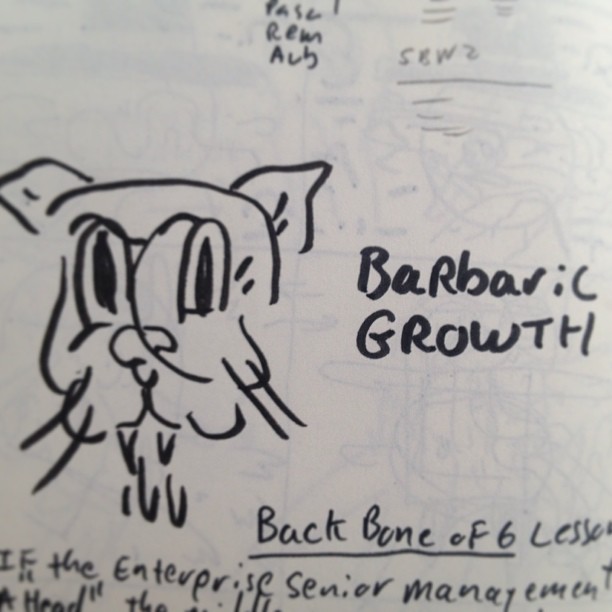 Rem
SBW2
BaRbaric
GROWTH
Back Bone of 6 Lesson
IF the Enterprise senior management
A Head" the middle